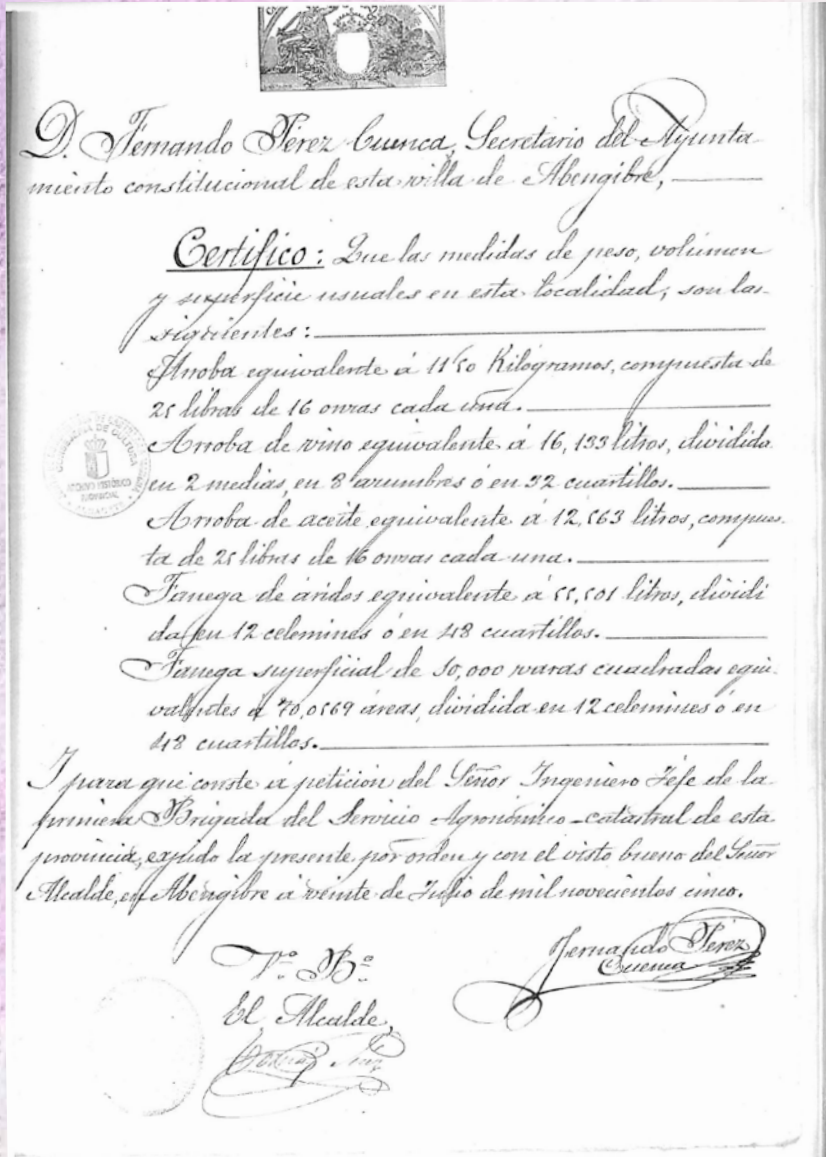 D. Fernando Pérez Cuenca, Secretario del Ayunta-
miento constitucional de esta villa de Abengibre,
Certifico: Que las medidas de peso, volúmen
y superficie usuales en esta localidad, son las
siguientes:
Arroba equivalente á 11'50 Kilógramos, compuesta de
25 libras de 16 onzas cada una.
Arroba de vino equivalente á 16,133 litros, dividida
en 2 medias, en 8 azumbres ó en 32 cuartillos.
Arroba de aceite equivalente á 12,563 litros, compues-
ta de 25 libras de 16 onzas cada una.
Fanega de áridos equivalente á 55,501 litros, dividi
da en 12 celemines ó en 48 cuartillos.
Fanega superficial de 10,000 varas cuadradas equi-
valentes á 70,0569 áreas, dividida en 12 celemines ó en
48 cuartillos.
Y para que conste á petición del Señor Ingeniero Jéfe de la
primera Brigada del Servicio Agronómico-catastral de esta
provincia, expido la presente por orden y con el visto bueno del Señor
Alcalde, en Abengibre á veinte de Julio de mil novecientos cinco.
Fernando Pérez
Cuenca
Vº Bº
El Alcalde,
ARCHIVO HISTÓRICO
PROVINCIAL